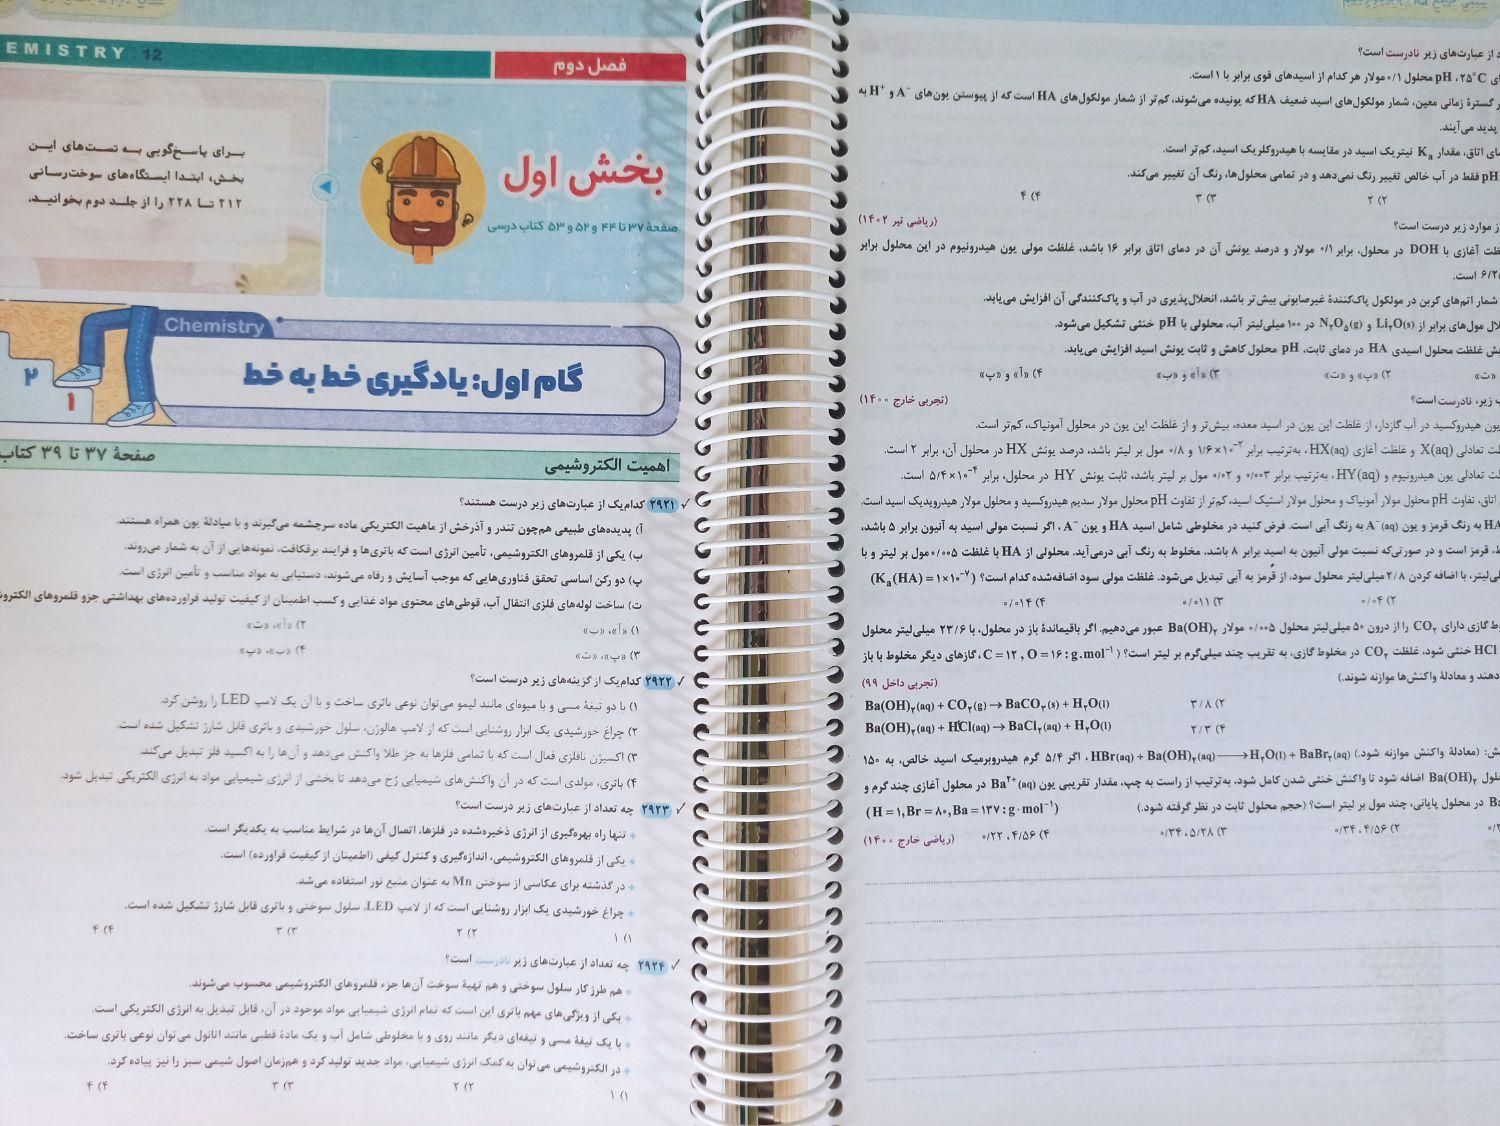 EMISTRY 12
فصل دوم
بخش اول
صفحهٔ ۳۷ تا ۴۴ و ۵۲ و ۵۳ کتاب درسی
برای پاسخ‌گویی به تست‌های این
بخش، ابتدا ایستگاه‌های سوخت‌رسانی
۲۱۲ تا ۲۲۸ را از جلد دوم بخوانید.
Chemistry
گام اول: یادگیری خط به خط
۲
۱
اهمیت الکتروشیمی
صفحهٔ ۳۷ تا ۳۹ کتاب
۲۹۲۱ کدام‌یک از عبارت‌های زیر درست هستند؟
آ) پدیده‌های طبیعی هم‌چون تندر و آذرخش از ماهیت الکتریکی ماده سرچشمه می‌گیرند و با مبادلهٔ یون همراه هستند.
ب) یکی از قلمروهای الکتروشیمی، تأمین انرژی است که باتری‌ها و فرایند برقکافت، نمونه‌هایی از آن به شمار می‌روند.
پ) دو رکن اساسی تحقق فناوری‌هایی که موجب آسایش و رفاه می‌شوند، دستیابی به مواد مناسب و تأمین انرژی است.
ت) ساخت لوله‌های فلزی انتقال آب، قوطی‌های محتوی مواد غذایی و کسب اطمینان از کیفیت تولید فراورده‌های بهداشتی جزو قلمروهای
۱) «آ»، «ب» ۲) «آ»، «ت»
۳) «پ»، «ت» ۴) «ب»، «پ»
۲۹۲۲ کدام‌یک از گزینه‌های زیر درست است؟
۱) با دو تیغهٔ مسی و با میوه‌ای مانند لیمو می‌توان نوعی باتری ساخت و با آن یک لامپ LED را روشن کرد.
۲) چراغ خورشیدی یک ابزار روشنایی است که از لامپ هالوژن، سلول خورشیدی و باتری قابل شارژ تشکیل شده است.
۳) اکسیژن نافلزی فعال است که با تمامی فلزها به جز طلا واکنش می‌دهد و آن‌ها را به اکسید فلز تبدیل می‌کند.
۴) باتری، مولدی است که در آن واکنش‌های شیمیایی رُخ می‌دهد تا بخشی از انرژی شیمیایی مواد به انرژی الکتریکی تبدیل شود.
۲۹۲۳ چه تعداد از عبارت‌های زیر درست است؟
تنها راه بهره‌گیری از انرژی ذخیره‌شده در فلزها، اتصال آن‌ها در شرایط مناسب به یکدیگر است.
یکی از قلمروهای الکتروشیمی، اندازه‌گیری و کنترل کیفی (اطمینان از کیفیت فراورده) است.
در گذشته برای عکاسی از سوختن Mn به عنوان منبع نور استفاده می‌شد.
چراغ خورشیدی یک ابزار روشنایی است که از لامپ LED، سلول سوختی و باتری قابل شارژ تشکیل شده است.
۱) ۱ ۲) ۲ ۳) ۳ ۴) ۴
۲۹۲۴ چه تعداد از عبارت‌های زیر نادرست است؟
هم طرز کار سلول سوختی و هم تهیهٔ سوخت آن‌ها جزء قلمروهای الکتروشیمی محسوب می‌شوند.
یکی از ویژگی‌های مهم باتری این است که تمام انرژی شیمیایی مواد موجود در آن، قابل تبدیل به انرژی الکتریکی است.
با یک تیغهٔ مسی و تیغه‌ای دیگر مانند روی و با مخلوطی شامل آب و یک مادهٔ قطبی مانند اتانول می‌توان نوعی باتری ساخت.
در الکتروشیمی می‌توان به کمک انرژی شیمیایی، مواد جدید تولید کرد و هم‌زمان اصول شیمی سبز را نیز پیاده کرد.
۱) ۱ ۲) ۲ ۳) ۳ ۴) ۴
از عبارت‌های زیر نادرست است؟
۲۵°C، pH محلول ۰/۱ مولار هر کدام از اسیدهای قوی برابر با ۱ است.
گسترهٔ زمانی معین، شمار مولکول‌های اسید ضعیف HA که یونیده می‌شوند، کم‌تر از شمار مولکول‌های HA است که از پیوستن یون‌های A⁻ و H⁺ به
پدید می‌آیند.
اتاق، مقدار Kₐ نیتریک اسید در مقایسه با هیدروکلریک اسید، کم‌تر است.
pH فقط در آب خالص تغییر رنگ نمی‌دهد و در تمامی محلول‌ها، رنگ آن تغییر می‌کند.
۲) ۲ ۳) ۳ ۴) ۴
از موارد زیر درست است؟ (ریاضی تیر ۱۴۰۲)
آغازی با DOH در محلول، برابر ۰/۱ مولار و درصد یونش آن در دمای اتاق برابر ۱۶ باشد، غلظت مولی یون هیدرونیوم در این محلول برابر
است.
شمار اتم‌های کربن در مولکول پاک‌کنندهٔ غیرصابونی بیش‌تر باشد، انحلال‌پذیری در آب و پاک‌کنندگی آن افزایش می‌یابد.
مول‌های برابر از Li₂O(s) و N₂O₅(g) در ۱۰۰ میلی‌لیتر آب، محلولی با pH خنثی تشکیل می‌شود.
غلظت محلول اسیدی HA در دمای ثابت، pH محلول کاهش و ثابت یونش اسید افزایش می‌یابد.
«ت» ۲) «پ» و «ت» ۳) «آ» و «ب» ۴) «آ» و «پ»
زیر، نادرست است؟ (تجربی خارج ۱۴۰۰)
یون هیدروکسید در آب گازدار، از غلظت این یون در اسید معده، بیش‌تر و از غلظت این یون در محلول آمونیاک، کم‌تر است.
تعادلی X(aq) و غلظت آغازی HX(aq)، به‌ترتیب برابر ۱/۶×۱۰⁻² و ۰/۸ مول بر لیتر باشد، درصد یونش HX در محلول آن، برابر ۲ است.
تعادلی یون هیدرونیوم و HY(aq)، به‌ترتیب برابر ۰/۰۰۳ و ۰/۰۲ مول بر لیتر باشد، ثابت یونش HY در محلول، برابر ۵/۴×۱۰⁻⁴ است.
اتاق، تفاوت pH محلول مولار آمونیاک و محلول مولار استیک اسید، کم‌تر از تفاوت pH محلول مولار سدیم هیدروکسید و محلول مولار هیدرویدیک اسید است.
HA به رنگ قرمز و یون A⁻(aq) به رنگ آبی است. فرض کنید در مخلوطی شامل اسید HA و یون A⁻، اگر نسبت مولی اسید به آنیون برابر ۵ باشد،
قرمز است و در صورتی‌که نسبت مولی آنیون به اسید برابر ۸ باشد، مخلوط به رنگ آبی درمی‌آید. محلولی از HA با غلظت ۰/۰۰۵ مول بر لیتر و با
میلی‌لیتر، با اضافه کردن ۲/۸ میلی‌لیتر محلول سود، از قرمز به آبی تبدیل می‌شود. غلظت مولی سود اضافه‌شده کدام است؟ (Kₐ(HA) = ۱×۱۰⁻⁷)
۲) ۰/۰۴ ۳) ۰/۰۱۱ ۴) ۰/۰۱۴
گازی دارای CO₂ را از درون ۵۰ میلی‌لیتر محلول ۰/۰۰۵ مولار Ba(OH)₂ عبور می‌دهیم. اگر باقیماندهٔ باز در محلول، با ۲۳/۶ میلی‌لیتر محلول
HCl خنثی شود، غلظت CO₂ در مخلوط گازی، به تقریب چند میلی‌گرم بر لیتر است؟ (C = ۱۲, O = ۱۶ : g.mol⁻¹، گازهای دیگر مخلوط با باز
دهند و معادلهٔ واکنش‌ها موازنه شوند.) (تجربی داخل ۹۹)
Ba(OH)₂(aq) + CO₂(g) → BaCO₃(s) + H₂O(l) ۲) ۳/۸
Ba(OH)₂(aq) + HCl(aq) → BaCl₂(aq) + H₂O(l) ۴) ۲/۳
(معادلهٔ واکنش موازنه شود.) HBr(aq) + Ba(OH)₂(aq) → H₂O(l) + BaBr₂(aq)، اگر ۵/۴ گرم هیدروبرمیک اسید خالص، به ۱۵۰
Ba(OH)₂ اضافه شود تا واکنش خنثی شدن کامل شود، به‌ترتیب از راست به چپ، مقدار تقریبی یون Ba²⁺(aq) در محلول آغازی چند گرم و
در محلول پایانی، چند مول بر لیتر است؟ (حجم محلول ثابت در نظر گرفته شود.) (H = ۱, Br = ۸۰, Ba = ۱۳۷ : g·mol⁻¹)
۲) ۴/۵۶، ۰/۳۴ ۳) ۵/۲۸، ۰/۳۴ ۴) ۴/۵۶، ۰/۲۲ (ریاضی خارج ۱۴۰۰)